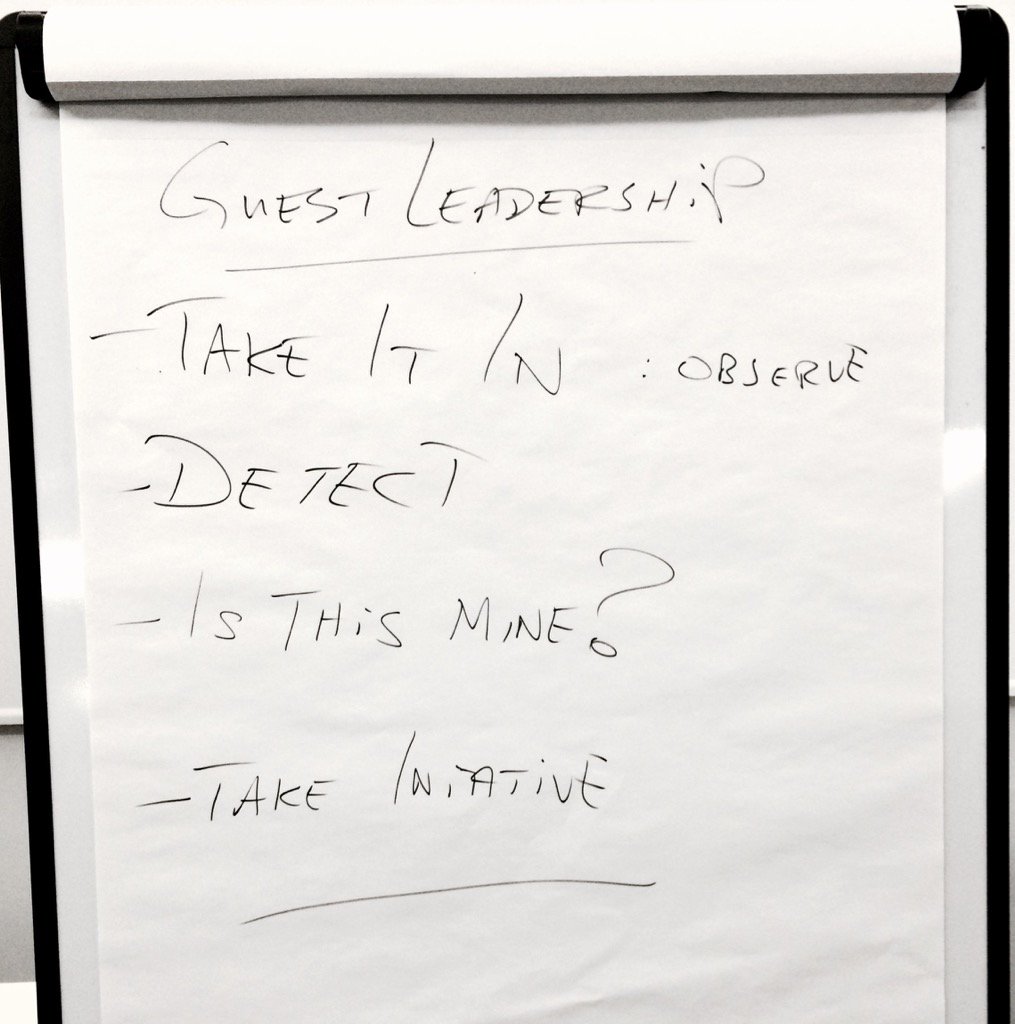 GUEST LEADERSHiP
- TAKE IT IN : OBSERVE
- DETECT
- IS THiS MINE?
- TAKE INiTATiVE